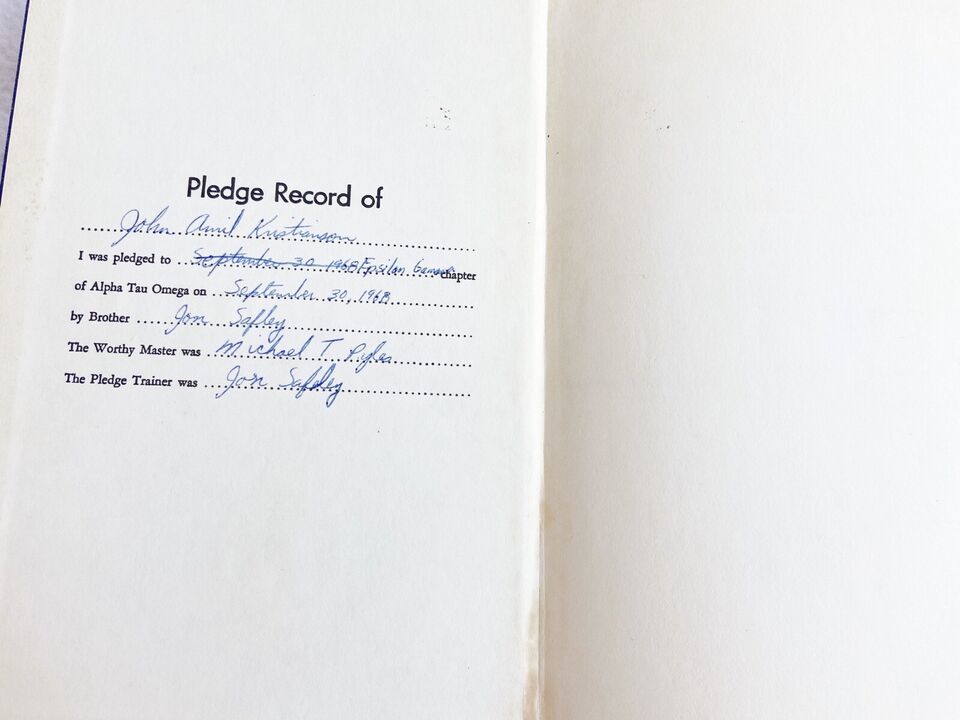 Pledge Record of
John Amil Kristianson
I was pledged to September 30 1968 Epsilon Gamma chapter
of Alpha Tau Omega on September 30, 1968
by Brother Jon Safley
The Worthy Master was Michael T.
The Pledge Trainer was Jon Safley